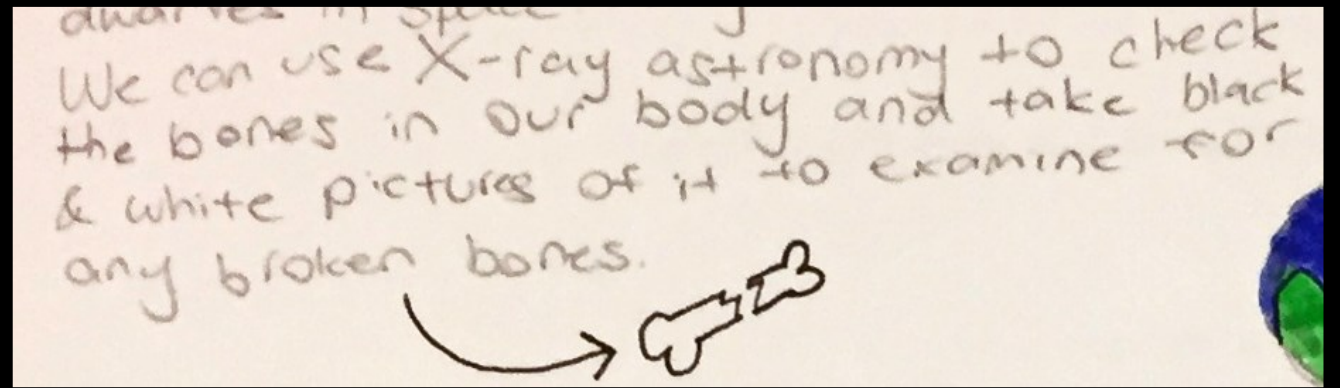 We can use X-ray astronomy to check
the bones in our body and take black
& white pictures of it to examine for
any broken bones.